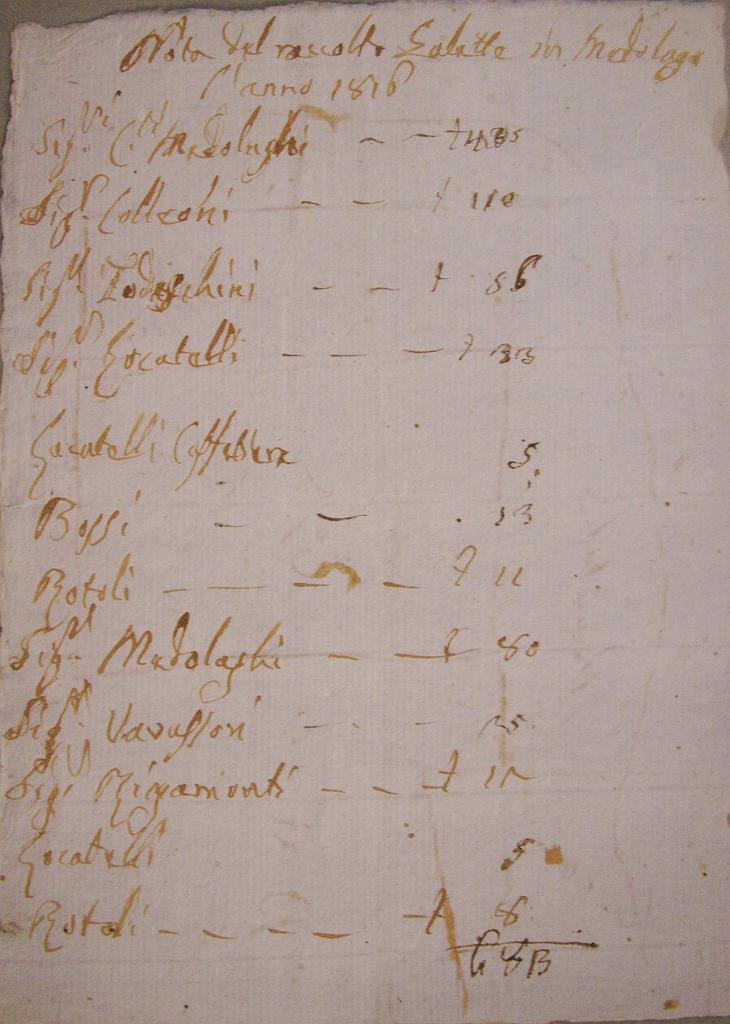 Nota del raccolto Galette in Medolago
l'anno 1816
Sig.ri C.ti Medolaghi – – +
Sig.r Colleoni – – + 110
Sig.ri Todeschini – – + 86
Sig.ri Locatelli – – – + 33
Locatelli Caffetiere 5
Bossi – – 13
Rotoli – – – – + 11
Sig.ri Medolaghi – – + 80
Sig.ri Vavassori – – –
Sig.ri Rigamonti – – +
Locatelli 5
Rotoli – – – – + 8